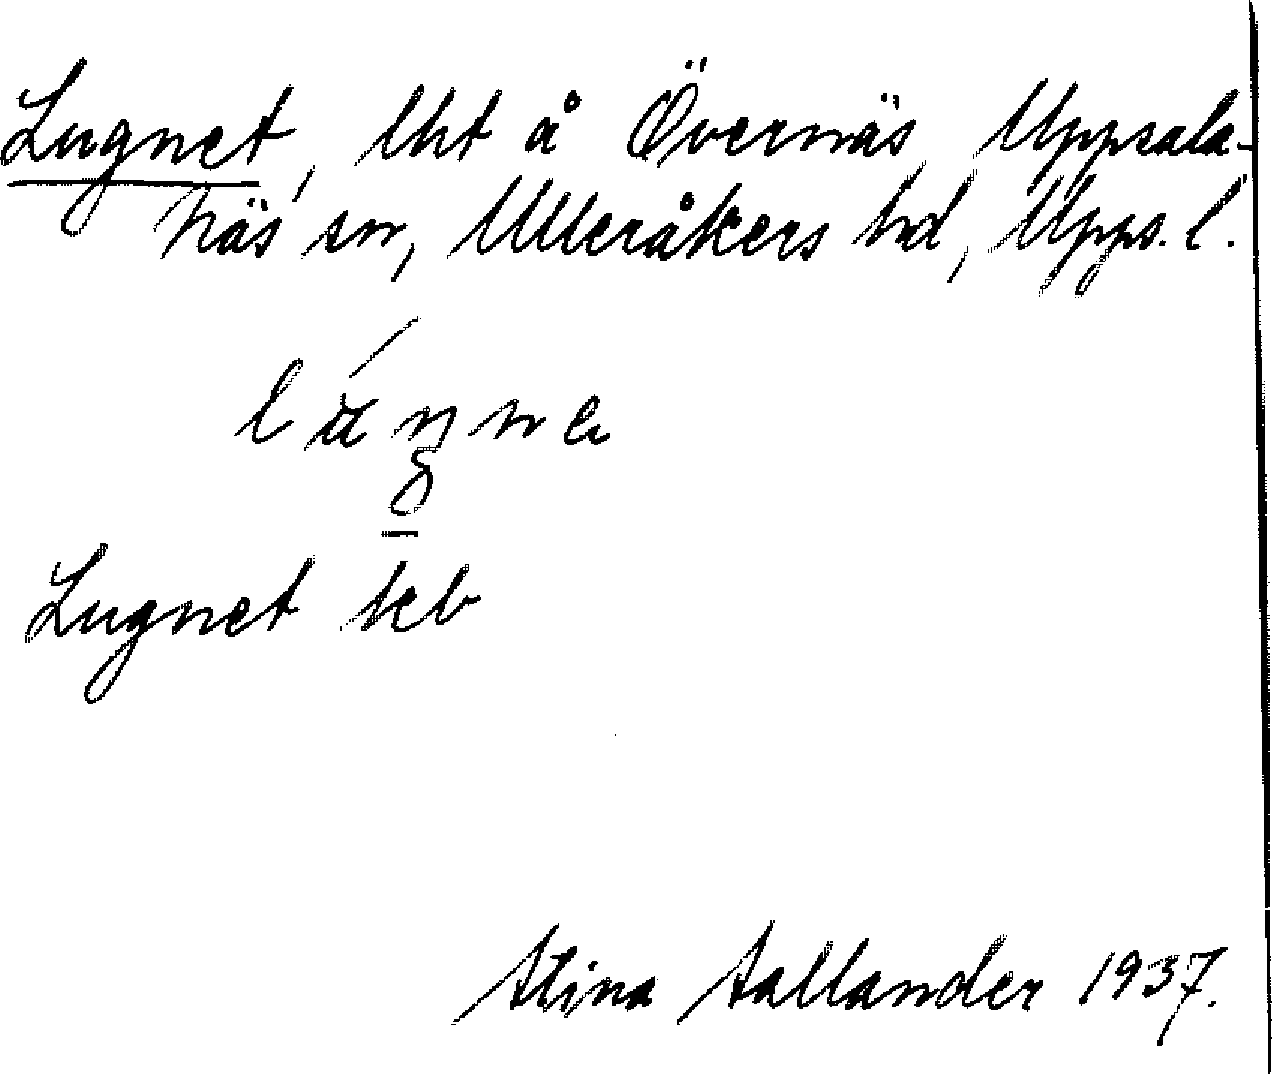 Lugnet, lht å Övernäs, Uppsala-
näs sn, Ulleråkers hd, Upps. l.
Lugnet kb
Stina Sallander 1937.